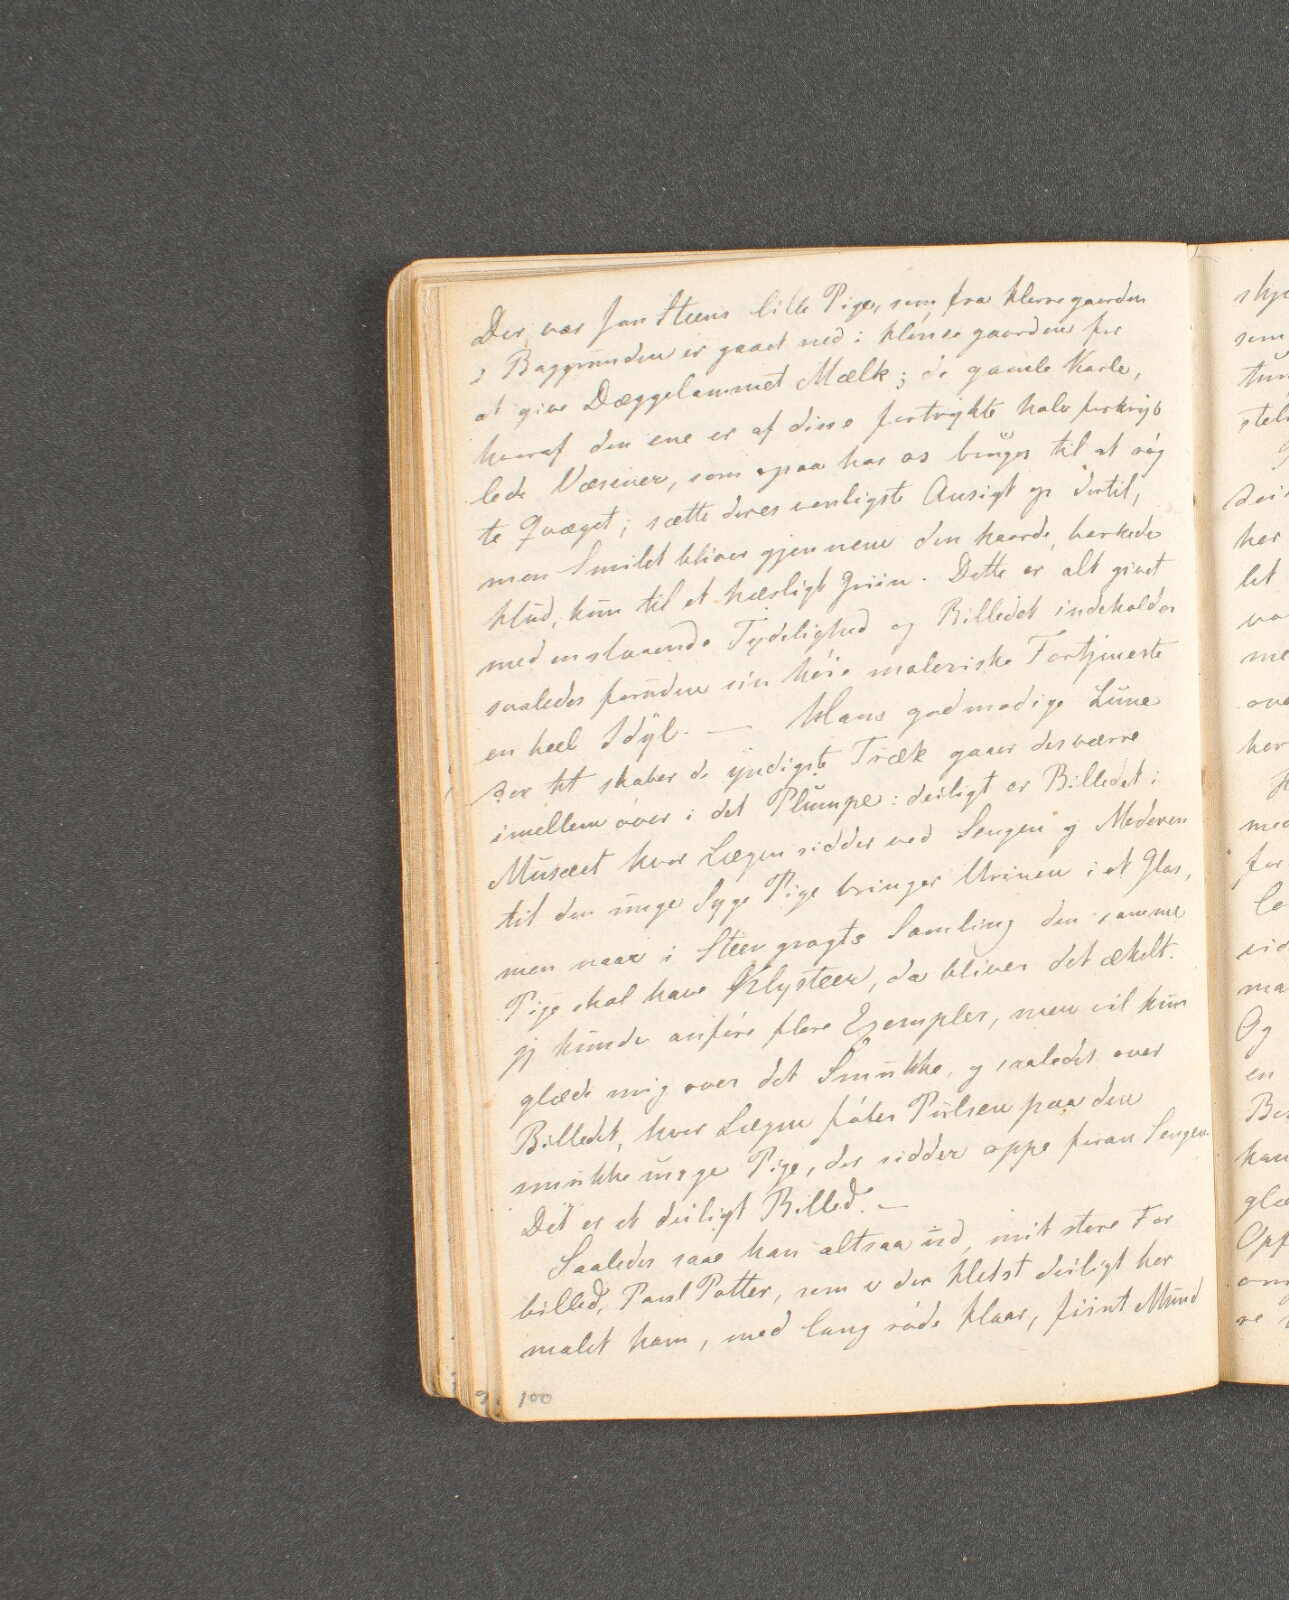 Der var Jan Steens lille Pige, som fra Herregaarden
i Baggrunden er gaaet ned i Hønsegaarden for
at give Dæggelammet Mælk; de gamle Karle,
hvoraf den ene er af disse fortrykte halv forkrÿb
lede Væsener, som ogsaa hos os bruges til at røg
te Qvæget; sætte deres venligste Ansigt op dertil,
men Smilet bliver gjennem den haarde, barkede
Hud, kun til et hæsligt Griin. Dette er alt givet
med en slaaende Tydelighed og Billedet indeholder
saaledes foruden sin høie maleriske Fortjeneste
en heel Idÿl. — Hans godmodige Lune
der tit skaber de ÿndigste Træk gaaer desværre
imellem over i det Plumpe: deiligt er Billedet i
Musæet hvor Lægen sidder ved Sengen og Moderen
til den unge Syge Pige bringer Urinen i et Glas,
men naar i Steengragts Samling den samme
Pige skal have Klysteer, da bliver det ækelt.
jeg kunde anføre flere Exempler, men vil kun
glæde mig over det Smukke, og saaledes over
Billedet, hvor Lægen føler Pulsen paa den
smukke unge Pige, der sidder oppe foran Sengen.
Det er et deiligt Billed. —
Saaledes saae han altsaa ud, mit store For
billed, Paul Potter, som v der Helst deiligt har
malet ham, med lang røde Haar, fiint Mund
100